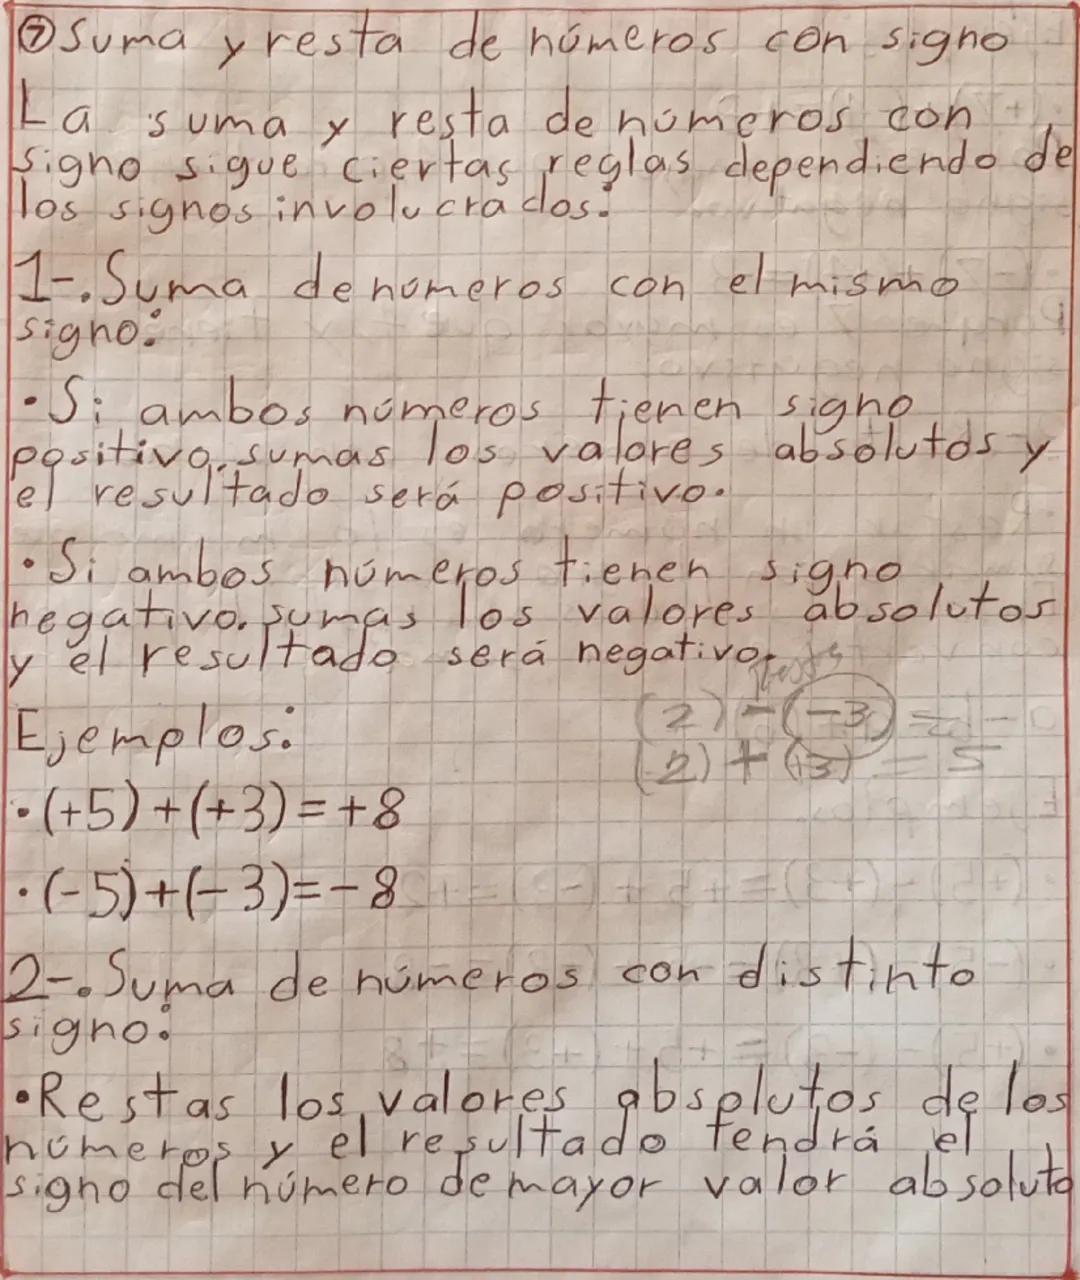 ⑦ Suma y resta de números con signo
La suma y resta de números con
signo sigue ciertas reglas dependiendo de
los signos involucrados:
1-. Suma de números con el mismo
signo:
• Si ambos números tienen signo
positivo. sumas los valores absolutos y
el resultado será positivo.
• Si ambos números tienen signo
negativo. sumas los valores absolutos
y el resultado será negativo.
(2) - (-3) =
Ejemplos:
(2) + (3) = 5
• (+5) + (+3) = +8
• (-5) + (-3) = -8
2-. Suma de números con distinto
signo:
• Restas los valores absolutos de los
números y el resultado tendrá el
signo del número de mayor valor absoluto